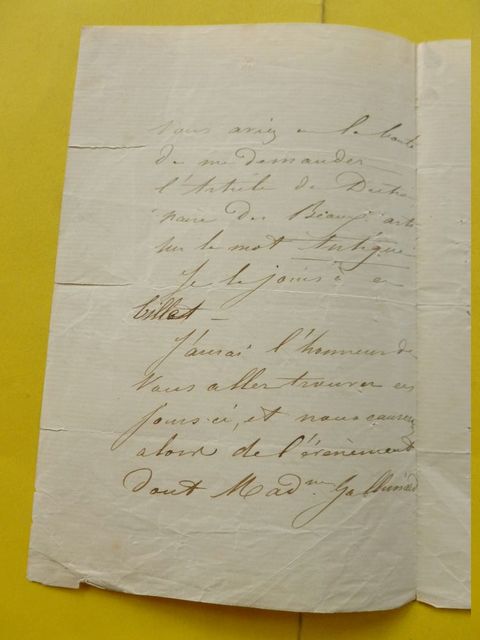 Vous aviez eu la bonté
de me demander
l'Article du Diction
naire des Beaux arts
sur le mot Antique
Je le joins à ce
billet —
J'aurai l'honneur de
Vous aller trouver ces
jours ci, et nous causerons
alors de l'évènement
dont Mad.me